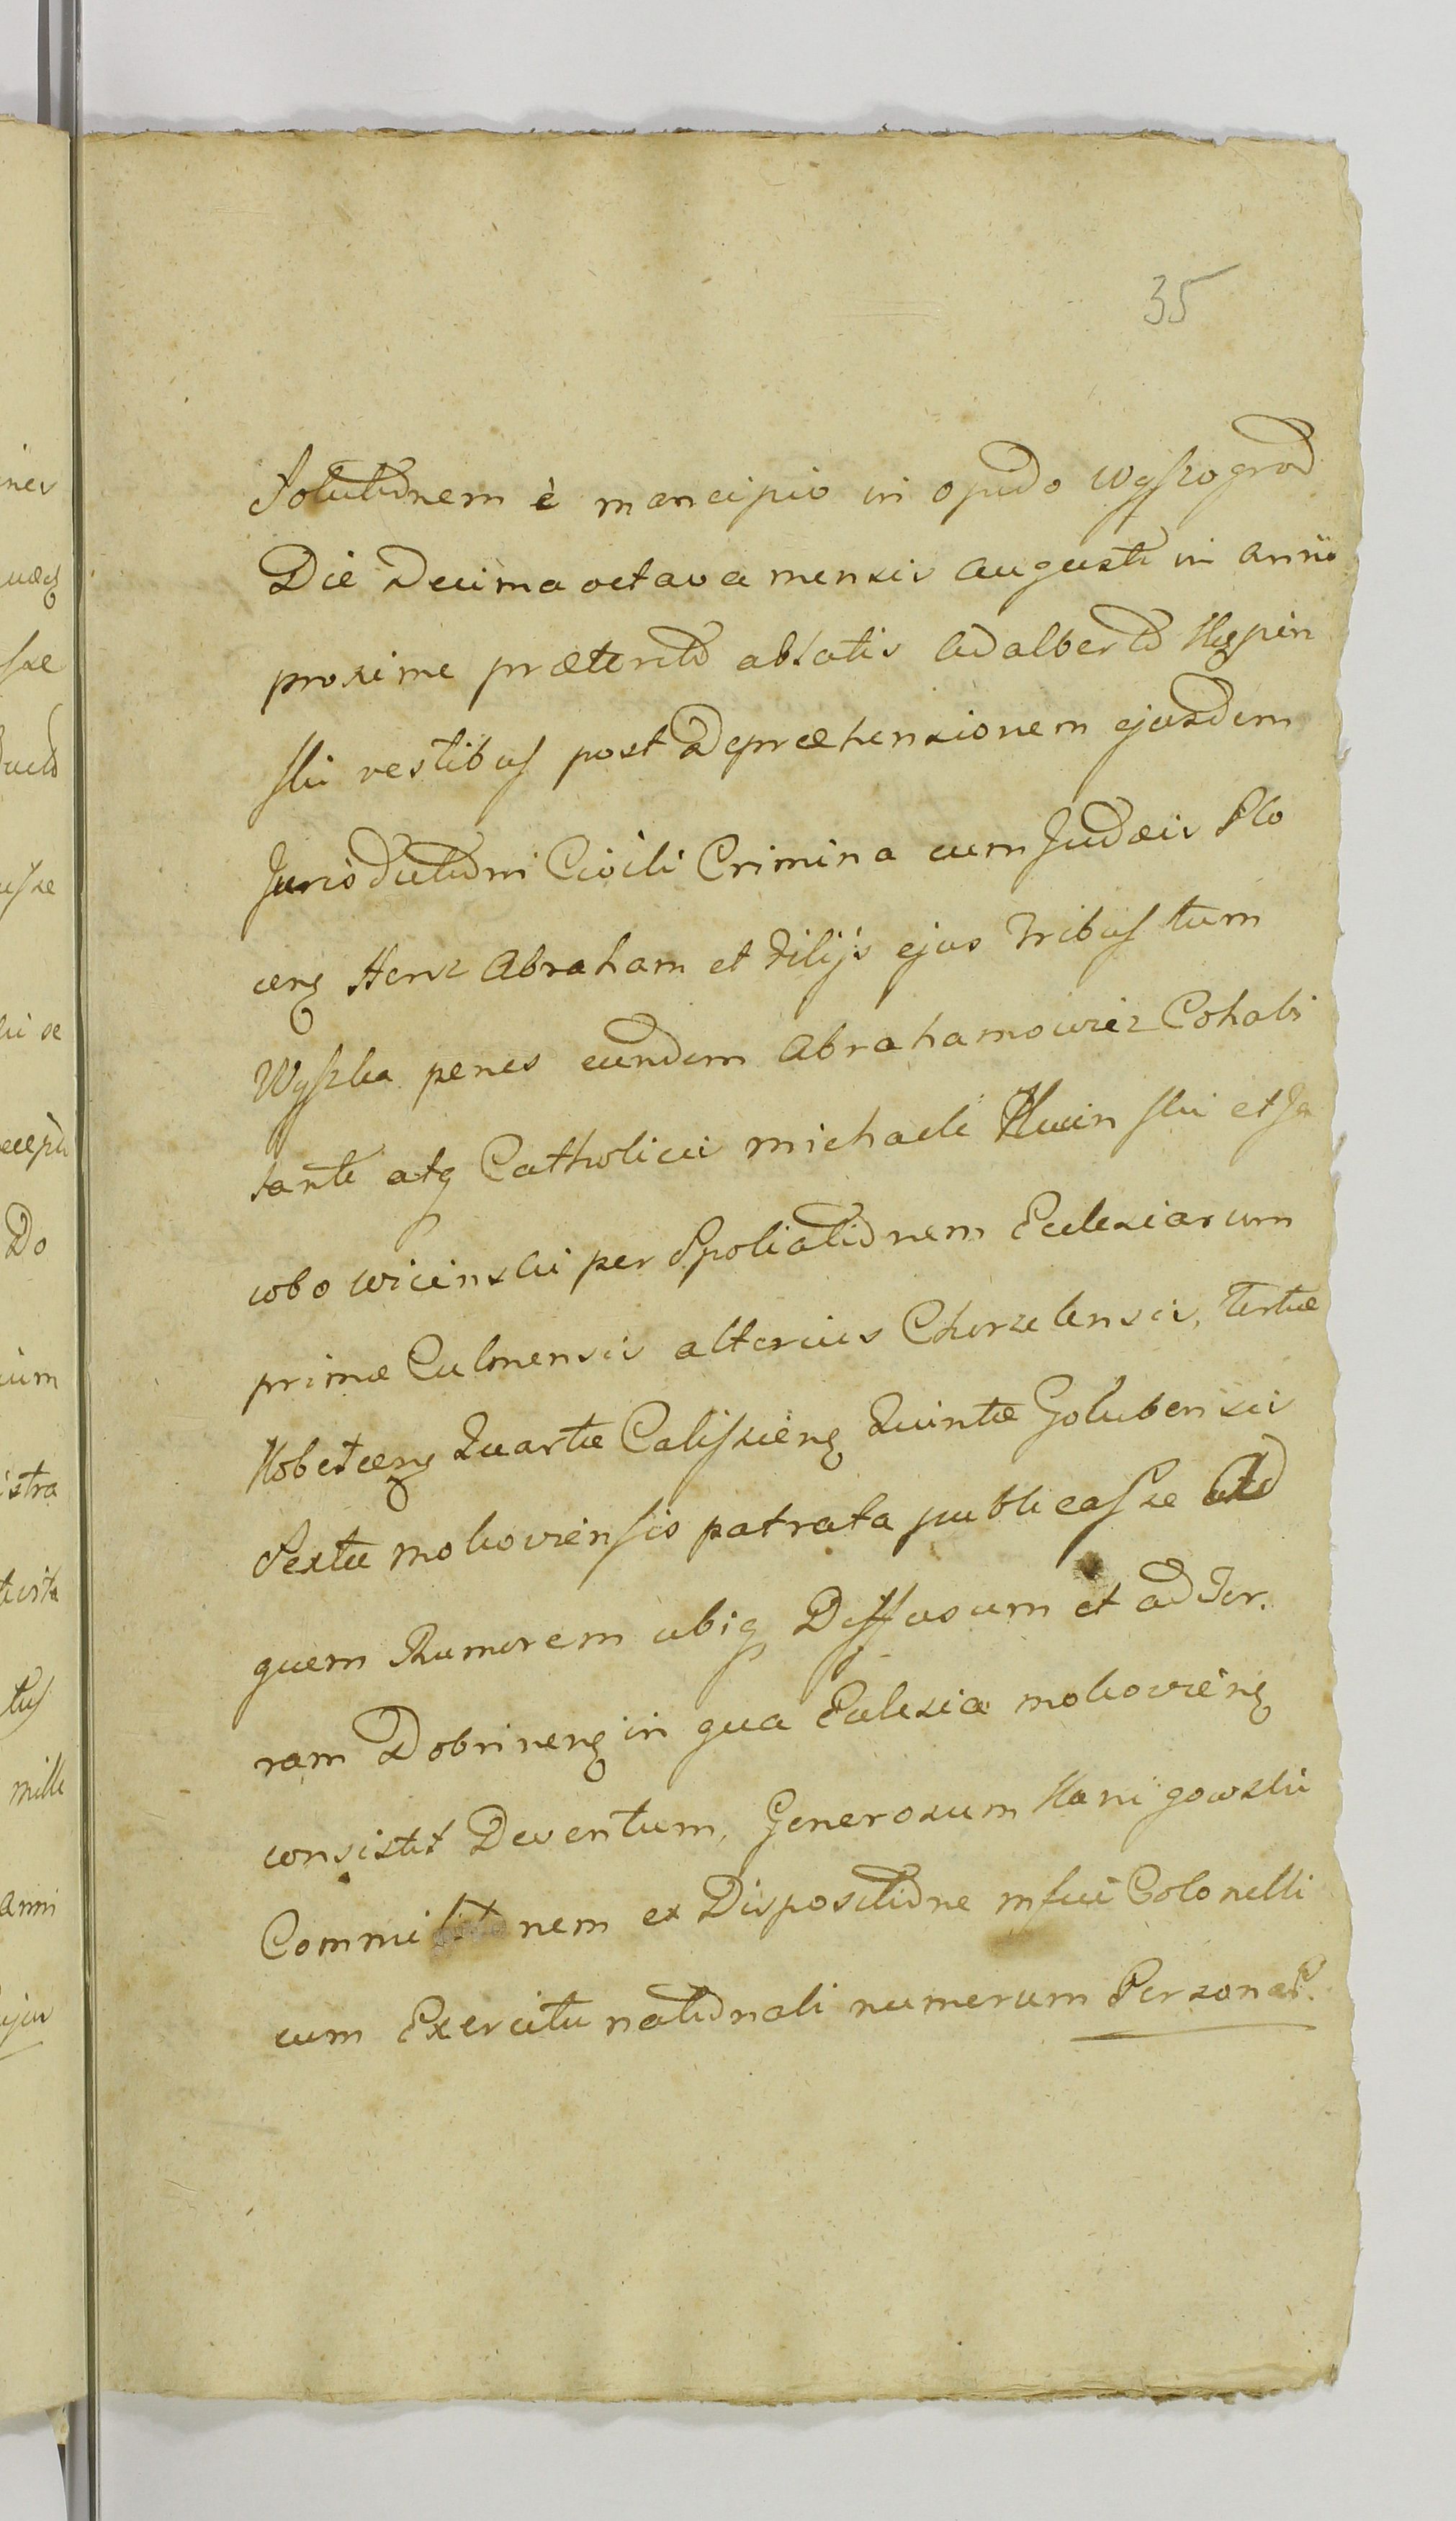 35
Solutionem è mancipio in opido Wyszogrod
Die Decima octava mensis Augusti in Anno
proxime præterito ablatis Adalberto Kęspin
ski vestibus post Depræhensionem ejusdem
Jurisdictioni Civili Crimina cum Judæis Plo
cens Hersz Abraham et Filijs ejus Tribus tum
Wyszka penes eundem Abrahamowicz Cohabi
tante atq Catholicis Michaele Klucinski et Ja
cobo Wicinski per Spoliationem Eclesiarum
primæ Culmensis alterius Chorzelensis, Tertiæ
Kobelcens Quartæ Calissiens Quintæ Golubensis
Sextæ Mokoviensis patrata publicasse Ad
quem Rumorem ubiq Diffusum et ad Ter.
ram Dobrinens in qua Eclesia Mokoviens
consistit Deventum, Generosum Kanigowski
Commilitonem ex Dispositione Mfici Colonelli
cum Exercitu nationali numerum Personar.
iner
sse
Do
ium
istra
tus
mille
Anni
ejus